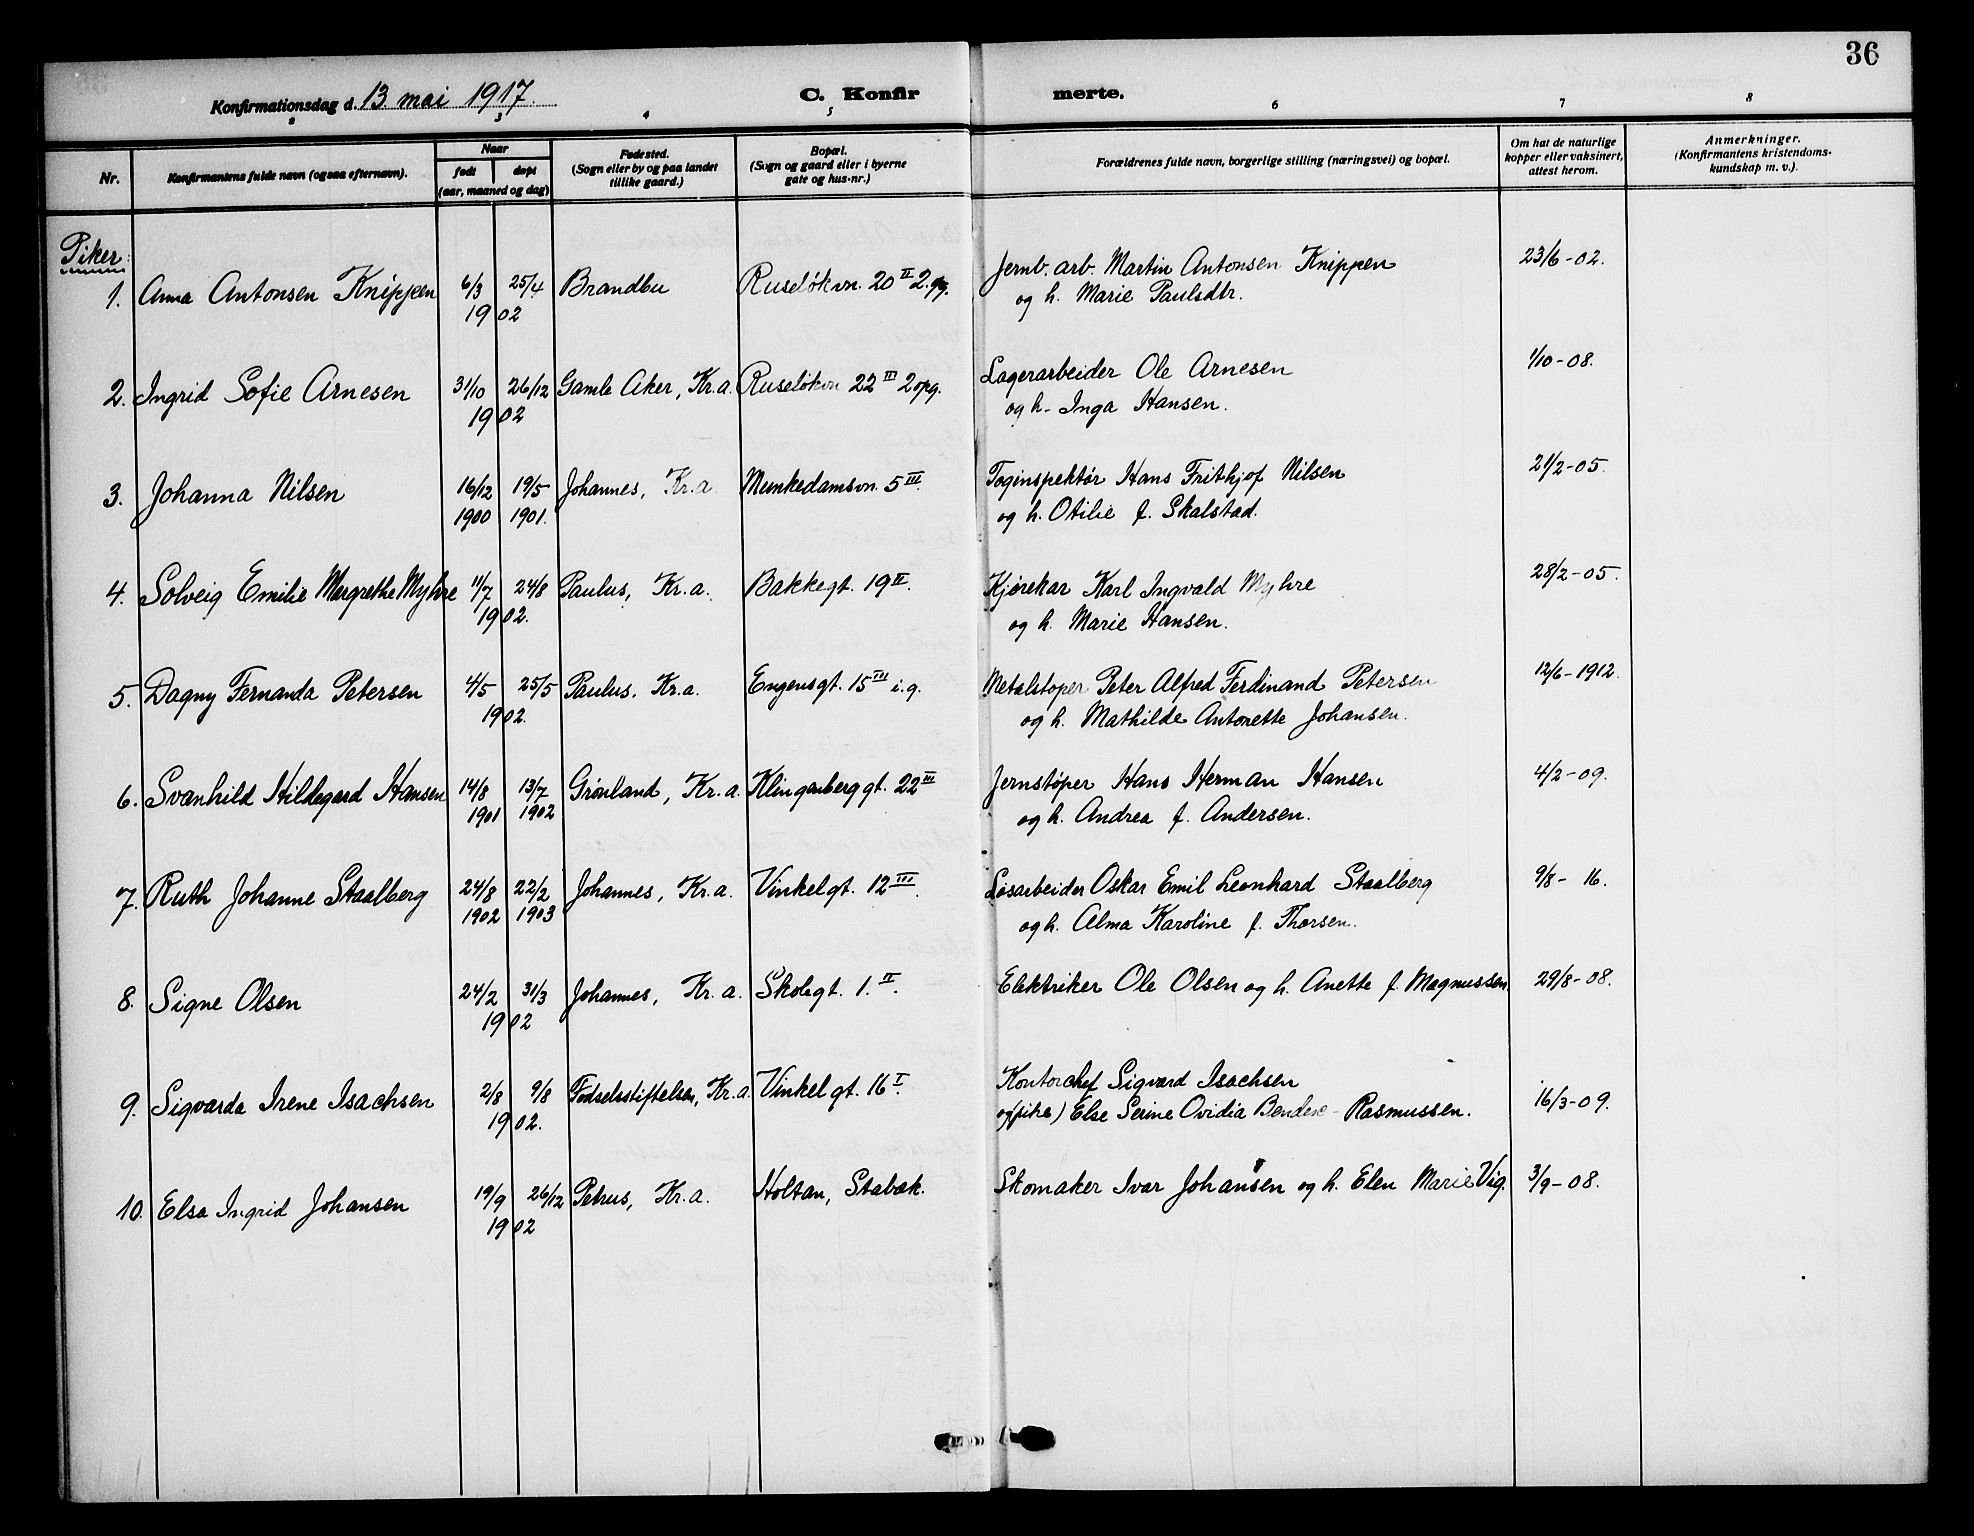 36
Konfirmationsdag d. 13 mai 1917. C. Konfir merte.
2 3 4 5 6 7 8
Nr. Konfirmantens fulde navn (ogsaa efternavn). Naar født døpt (aar, maaned og dag) Fødested. (Sogn eller by og paa landet tillike gaard.) Bopæl. (Sogn og gaard eller i byerne gate og hus-nr.) Forældrenes fulde navn, borgerlige stilling (næringsvei) og bopæl. Om hat de naturlige kopper eller vaksinert, attest herom. Anmerkninger. (Konfirmantens kristendoms-kundskap m. v.).
Piker:
1. Anna Antonsen Knippen 6/3 25/4 Brandbu Ruseløkvn. 20 II 2.pg. Jernb. arb. Martin Antonsen Knippen 23/6-02.
1902 og h. Marie Paulsdtr.
2. Ingrid Sofie Arnesen 31/10 26/12 Gamle Aker, Kr.a. Ruseløkvn 22 III 2opg. Lagerarbeider Ole Arnesen 1/10-08.
1902 og h. Inga Hansen.
3. Johanna Nilsen 16/12 19/5 Johannes, Kr.a. Munkedamsvn. 5 III. Toginspektør Hans Frithjof Nilsen 21/2-05.
1900 1901. og h. Otilie f. Skalstad.
4. Solveig Emilie Margrethe Myhre 11/7 24/8 Paulus, Kr.a. Bakkegt. 19 II. Kjørekar Karl Ingvald Myhre 28/2-05.
1902. og h. Marie Hansen.
5. Dagny Fernanda Petersen 4/5 25/5 Paulus, Kr.a. Engensgt. 15 III i.g. Metalstøper Peter Alfred Ferdinand Petersen 12/6-1912.
1902. og h. Mathilde Antonette Johansen.
6. Svanhild Hildegard Hansen 14/8 13/7 Grønland, Kr.a. Klingenberggt. 22 III Jernstøper Hans Herman Hansen 4/2-09.
1901 1902 og h. Andrea f. Andersen.
7. Ruth Johanne Staalberg 24/8 22/2 Johannes, Kr.a. Vinkelgt. 12 III. Løsarbeider Oskar Emil Leonhard Staalberg 9/8-16.
1902 1903 og h. Alma Karoline f. Thorsen.
8. Signe Olsen 24/2 31/3 Johannes, Kr.a. Skolegt. 1. II. Elektriker Ole Olsen og h. Anette f. Magnussen. 29/8-08.
1902
9. Sigvarda Irene Isachsen 2/8 9/8 Fødselsstiftelsen, Kr.a. Vinkelgt. 16 I. Kontorchef Sigvard Isachsen
1902. og (pike) Else Serine Ovidia Rasmussen. 16/3-09.
10. Elsa Ingrid Johansen 19/9 26/12 Petrus, Kr.a. Holtan, Stabæk. Skomaker Ivar Johansen og h. Elen Marie Vig. 3/9-08.
1902